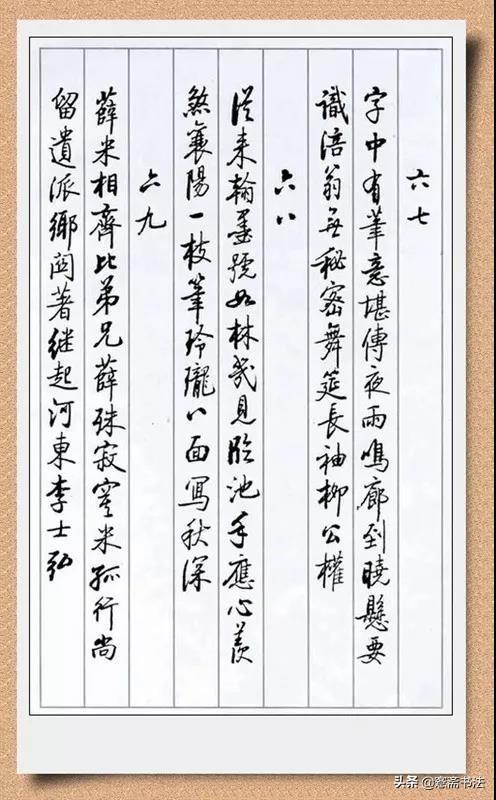 六七
字中有筆意堪傳夜雨鳴廊到曉懸要
識涪翁無秘密舞筵長袖柳公權
六八
從来翰墨號如林幾見臨池手應心羨
煞襄陽一枝筆玲瓏八面寫秋深
六九
薛米相齊比弟兄薛殊寂寞米孤行尚
留遺派鄉閭著继起河東李士弘
头条 @蹇斋书法